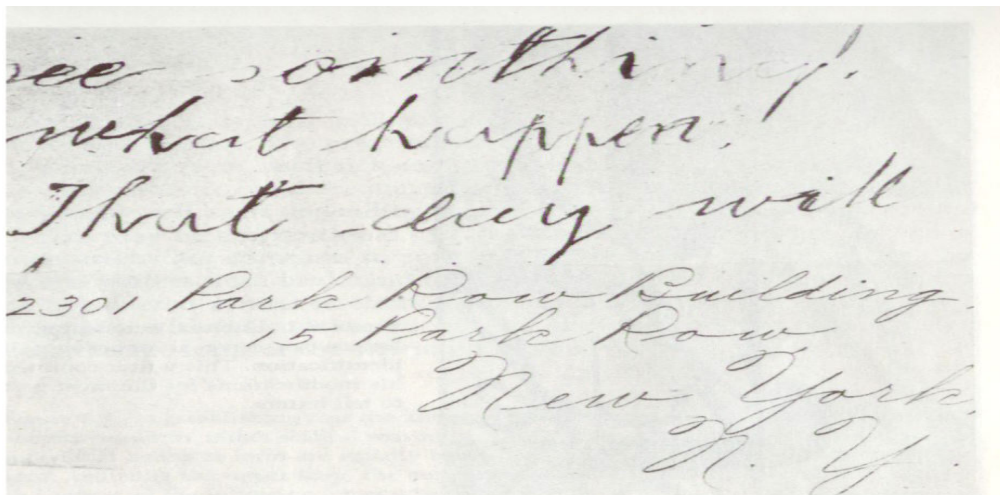 see somthing!
what happen!
That day will
2301 Park Row Building,
15 Park Row
New York,
N. Y.